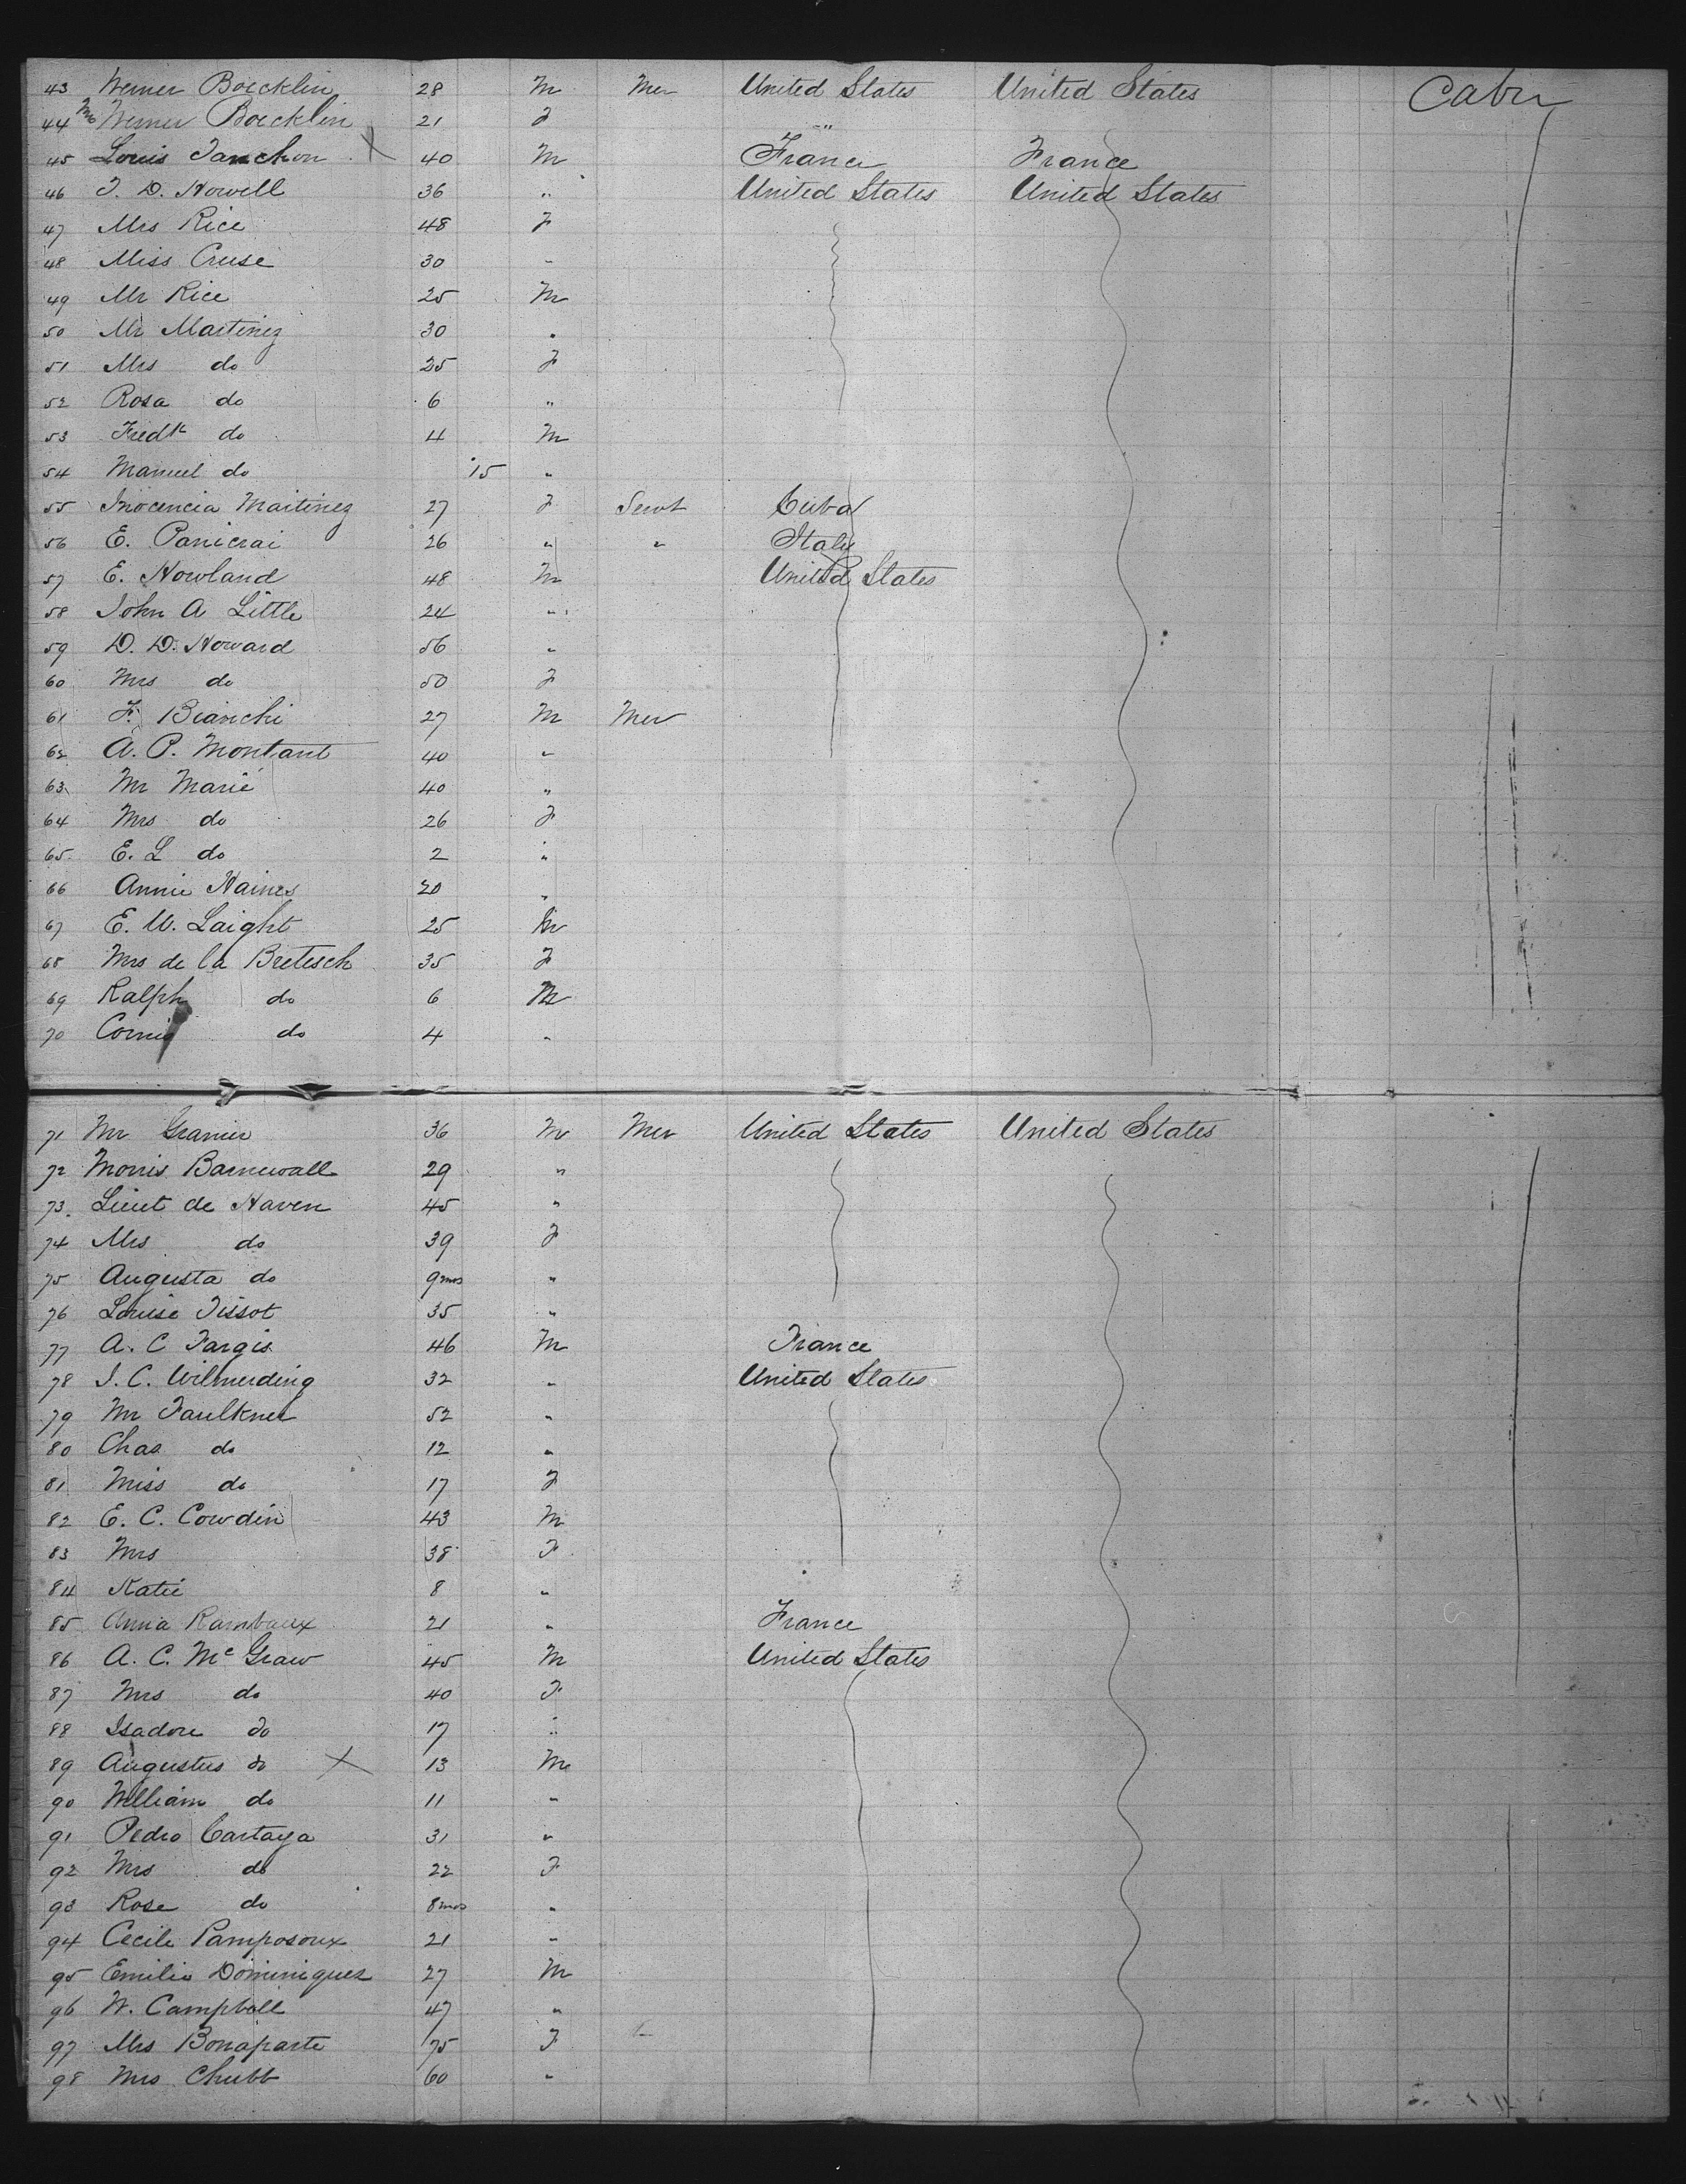 43 Werner Boecklin 28 M Mer United States United States Cabin
44 Mrs Werner Boecklin 21 F "
45 Louis Tanchon X 40 M France France
46 T. D. Howell 36 " United States United States
47 Mrs Rice 48 F
48 Miss Cruse 30 "
49 Mr Rice 25 M
50 Mr Martinez 30 "
51 Mrs do 25 F
52 Rosa do 6 "
53 Fredk do 4 M
54 Manuel do 15 "
55 Inocencia Martinez 27 F Servt Cuba
56 E. Panierai 26 " " Italy
57 E. Howland 48 M United States
58 John A Little 24 "
59 D. D. Howard 56 "
60 Mrs do 50 F
61 F. Bianchi 27 M Mer
62 A. P. Montant 40 "
63 Mr Marié 40 "
64 Mrs do 26 F
65 E. L do 2 "
66 Annie Haines 20 "
67 E. W. Laight 25 M
68 Mrs de la Bretesch 35 F
69 Ralph do 6 M
70 do 4 "
71 Mr Granier 36 M Mer United States United States
72 Morris Barnewall 29 "
73. Lieut de Haven 45 "
74 Mrs do 39 F
75 Augusta do 9mos "
76 Louise Tissot 35 "
77 A. C Fargis 46 M France
78 J. C. Wilmerding 32 " United States
79 Mr Faulkner 52 "
80 Chas do 12 "
81 Miss do 17 F
82 E. C. Cowdin 43 M
83 Mrs 38 F
84 Katie 8 "
85 Anna Rambaux 21 " France
86 A. C. McGraw 45 M United States
87 Mrs do 40 F
88 Isadore do 17 "
89 Augustus do X 13 M
90 William do 11 "
91 Pedro Cartaya 31 "
92 Mrs do 22 F
93 Rose do 8mos "
94 Cecile Pamposoux 21 "
95 Emilio Dominiguez 27 M
96 W. Campbell 47 "
97 Mrs Bonaparte 75 F
98 Mrs Chubb 60 "